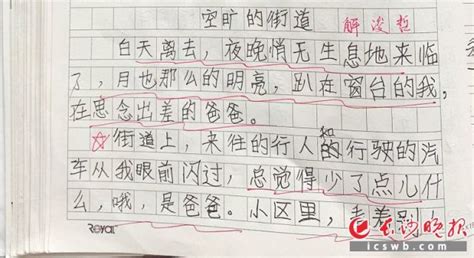 空旷的街道 解浚哲
白天离去，夜晚悄无生息地来临
了，月也那么的明亮，趴在窗台的我，
在思念出差的爸爸。
街道上，来往的行人和的行驶的汽
车从我眼前闪过，总觉得少了点儿什
么，哦，是爸爸。小区里，
ROYAL
长沙晚报
icswb.com